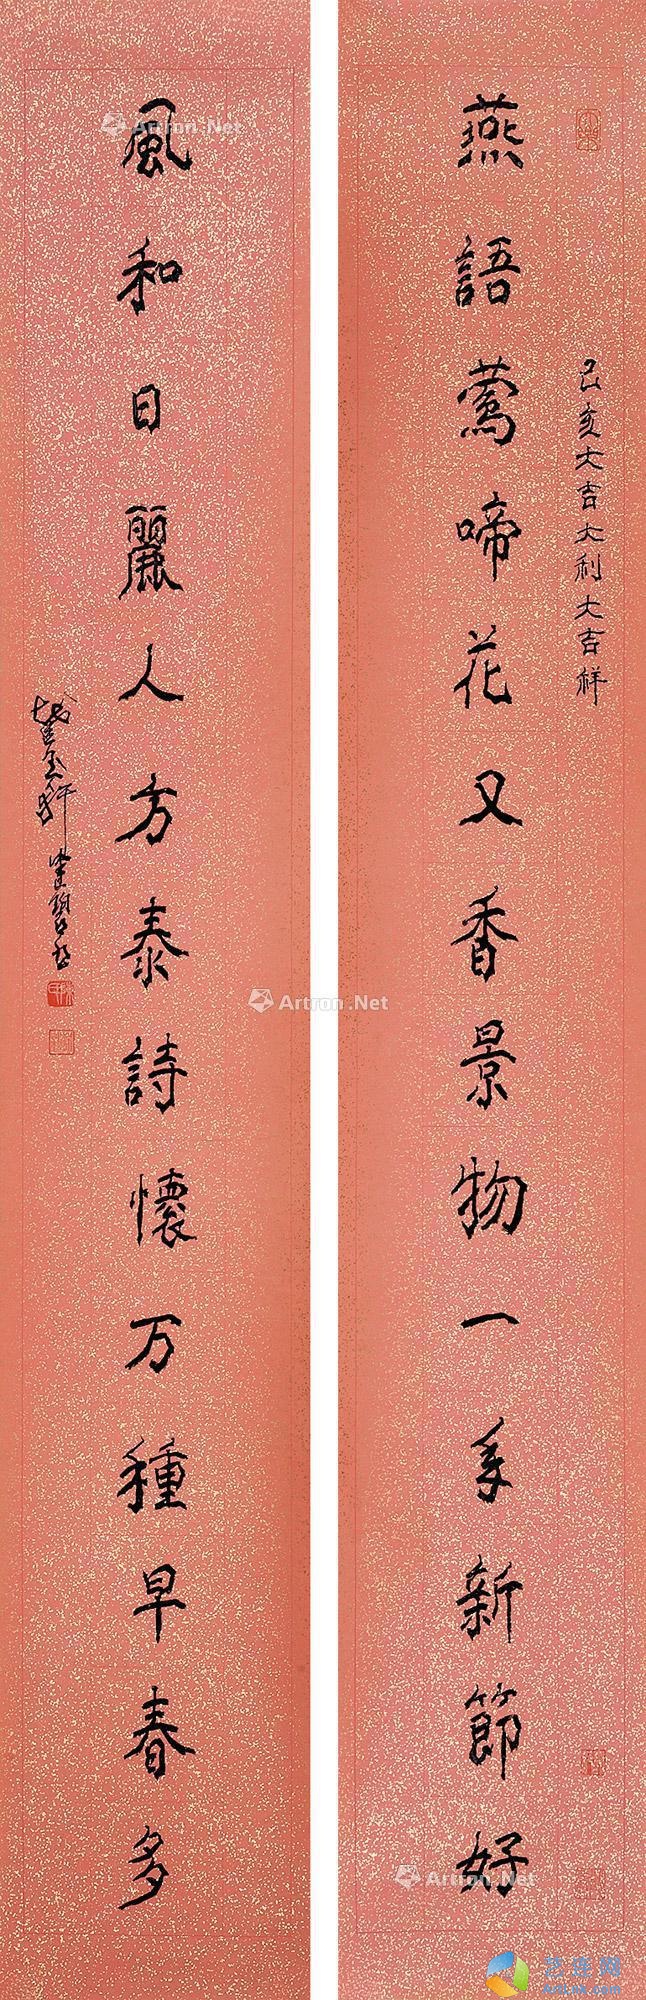 燕語鶯啼花又香景物一年新節好
己亥大吉大利大吉祥
風和日麗人方泰詩懷万種早春多
Artron.Net
Artron.Net
Artron.Net
Artron.Net